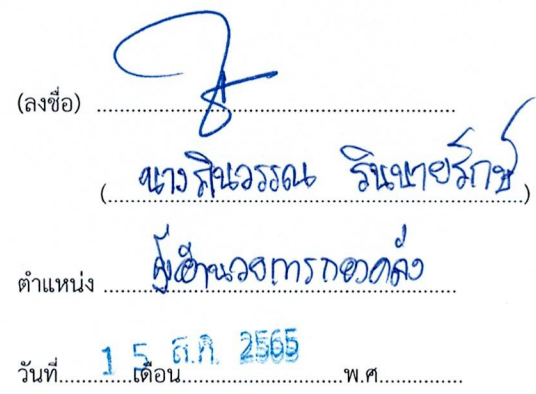 (ลงชื่อ) ................................................
(นางภินวรรณ รินชายรักษ์)
ตำแหน่ง ผู้อำนวยการกองคลัง
วันที่ 15 เดือน ส.ค. 2565 พ.ศ.